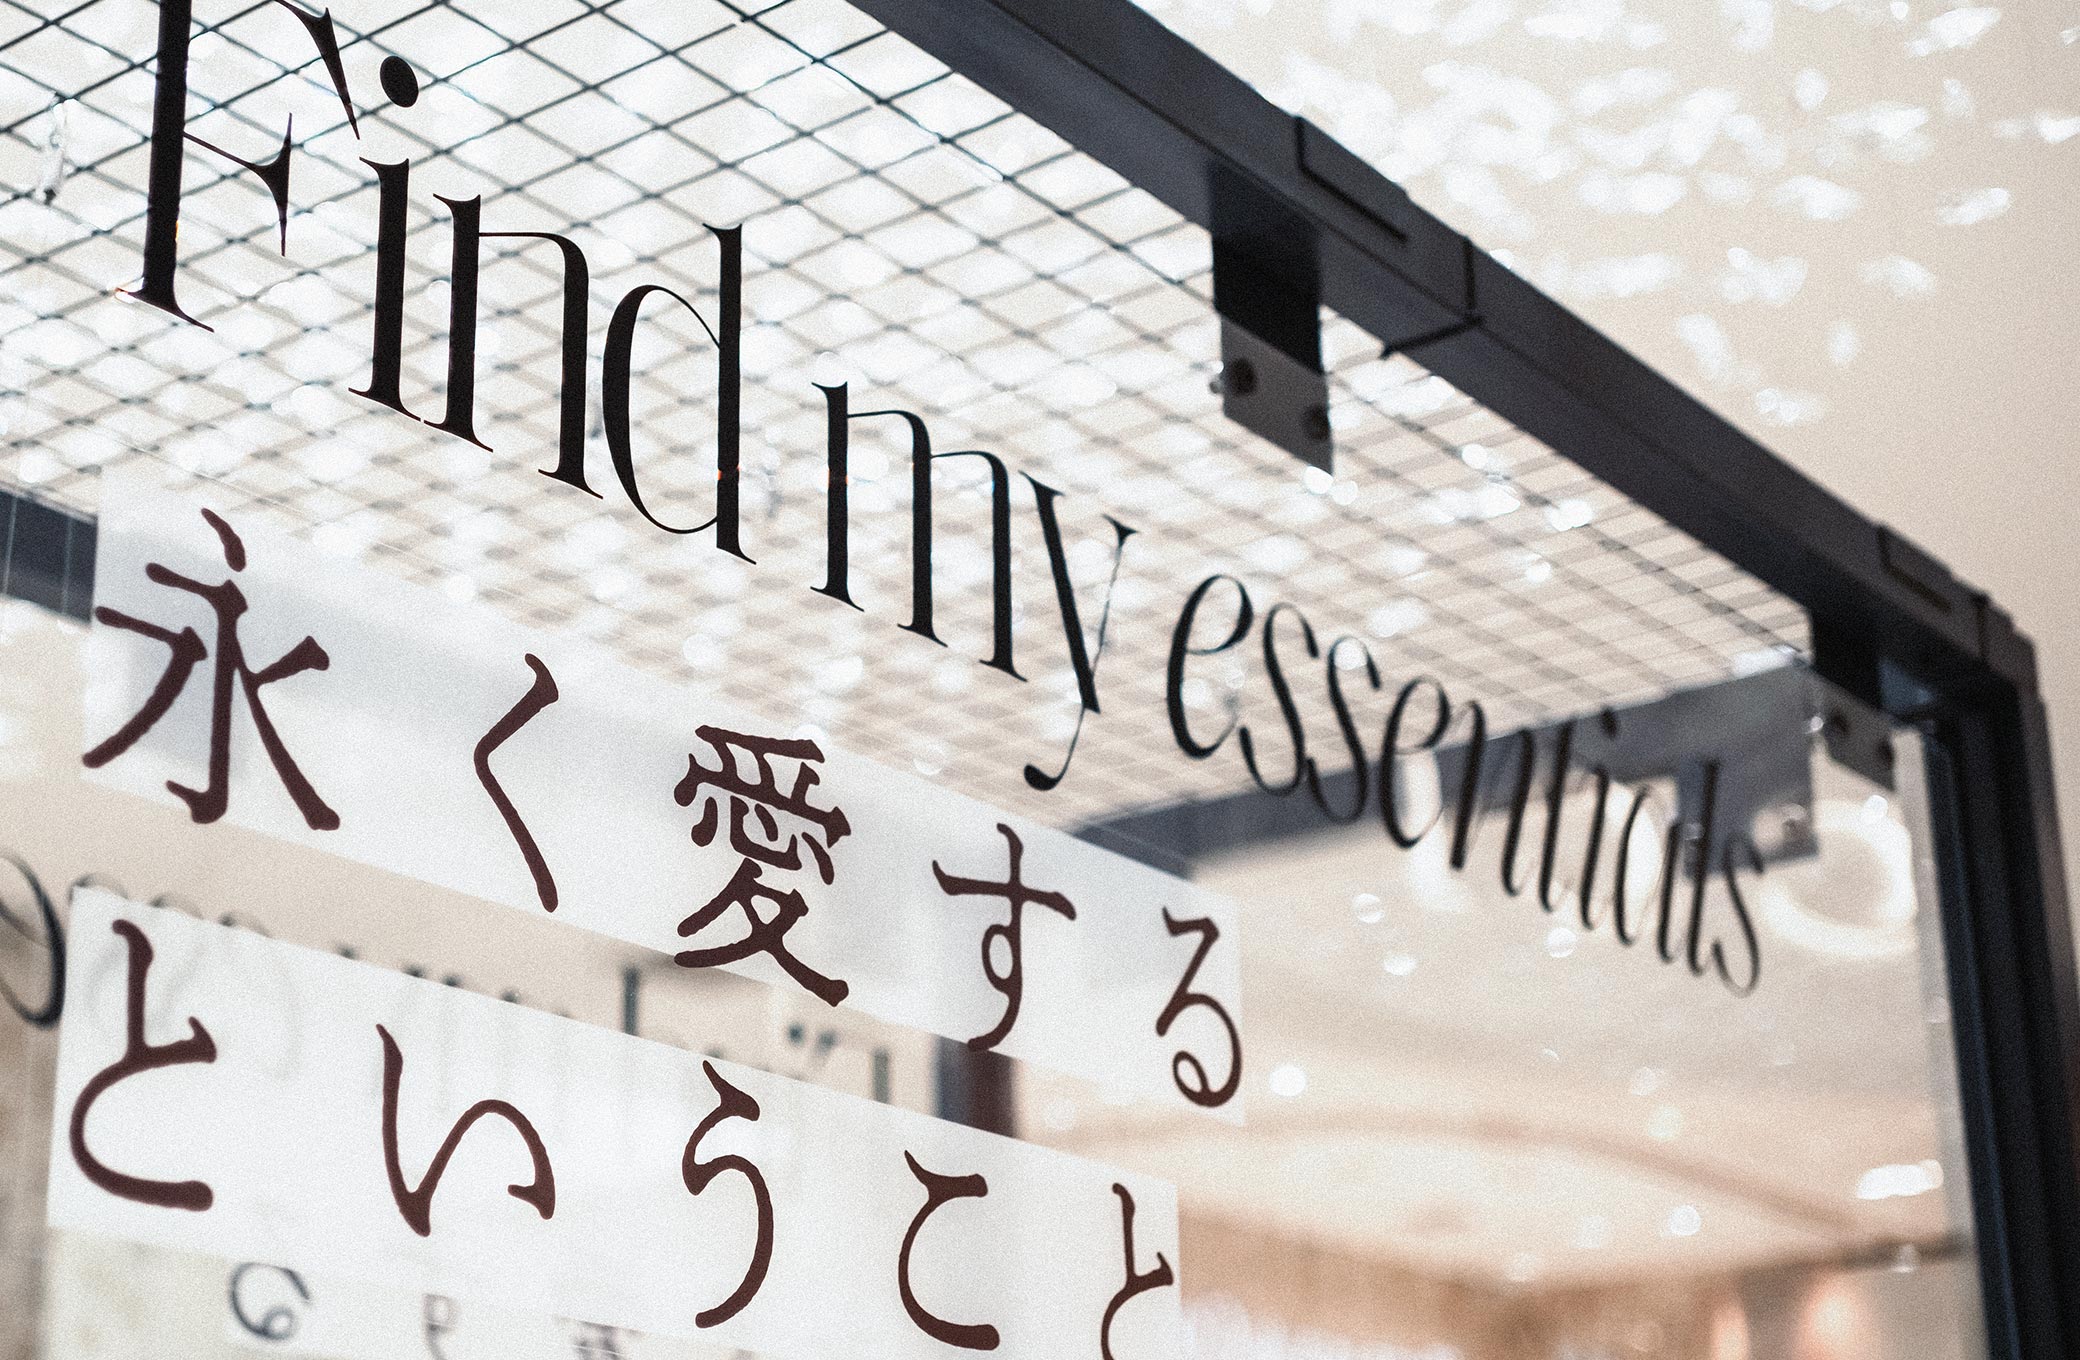 Find my essentials
永く愛する
ということ